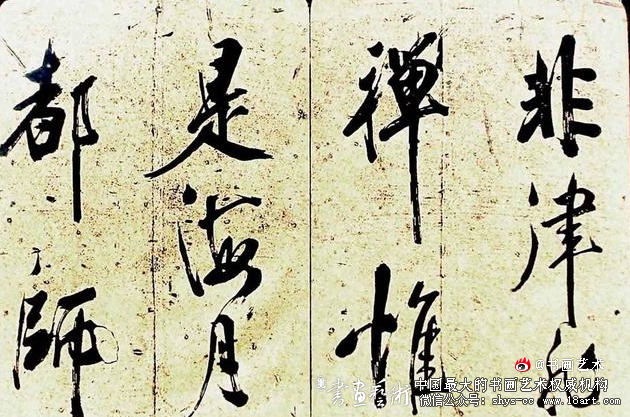 非律
禪惟
是海月
都師
@书画艺术
中国最大的书画艺术权威机构
微信公众号：shys-cc www.18art.com